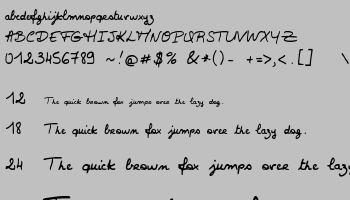 abcdefghijklmnopqrstuvwxyz
ABCDEFGHIJKLMNOPQRSTUVWXYZ
0123456789 ~!@#$% &*()- +=>,<.[] \
12 The quick brown fox jumps over the lazy dog.
18 The quick brown fox jumps over the lazy dog.
24 The quick brown fox jumps over the lazy